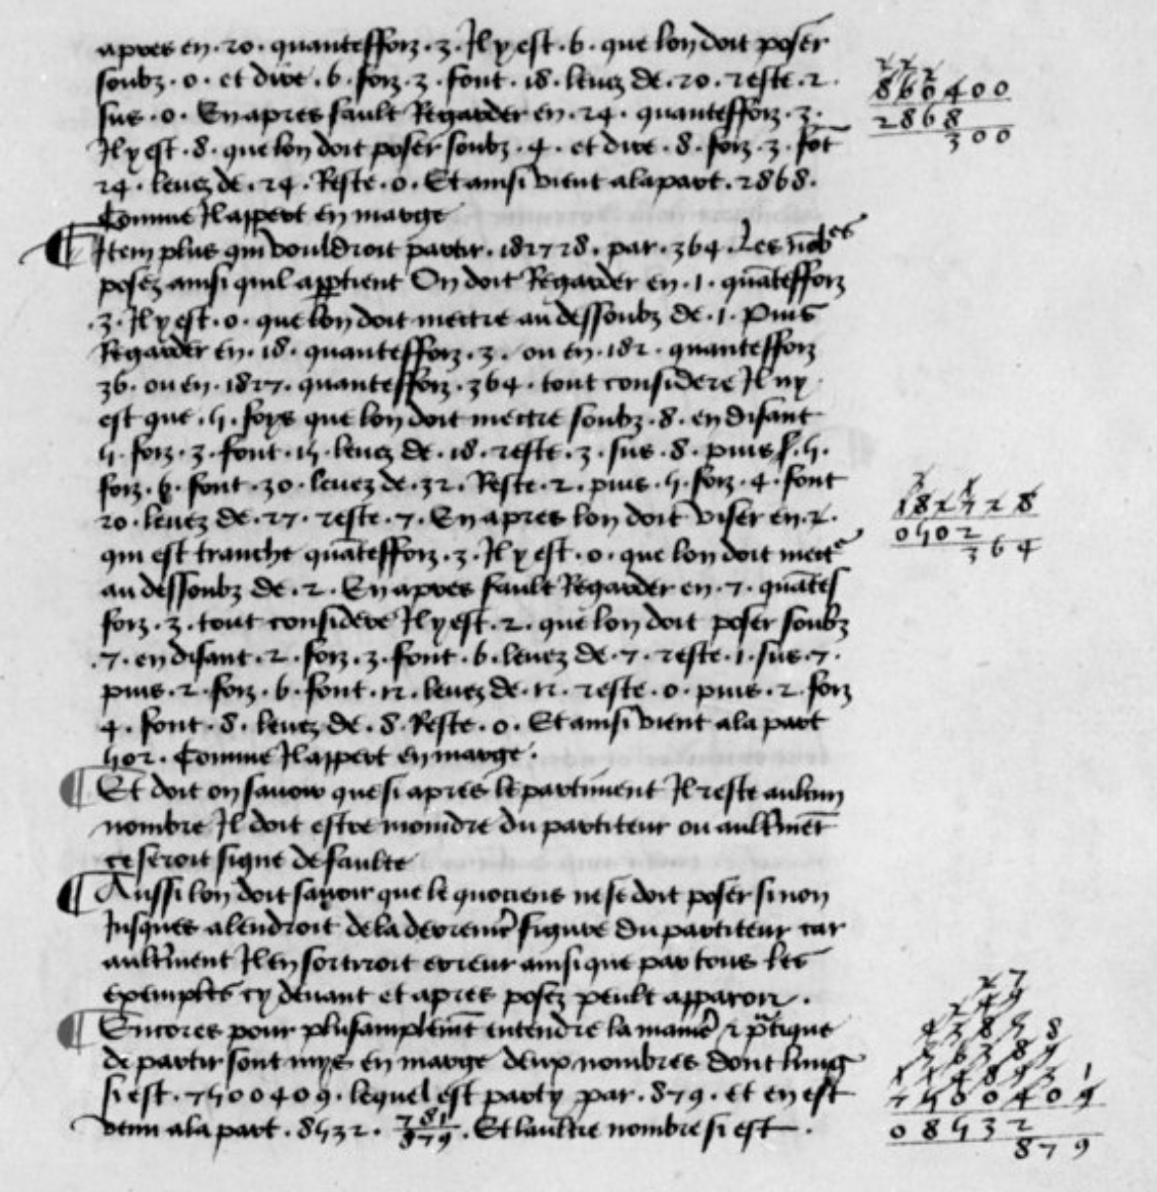 apres en .20. quantesffoiz .3. Il y est .6. que lon doit poser
soubz .0. et dire .6. foiz .3. font .18. levez de .20. reste .2.
sus .0. En apres fault Regarder en .24. quantesffoiz .3.
Il y est .8. que lon doit poser soubz .4. et dire .8. foiz .3. fōt
24. levez de .24. Reste .0. Et ainsi vient a la part .2868.
Comme Il appert en marge
Item plus qui vouldroit partir .182728. par .364. Les nōbres
posez ainsi quil appartient On doit Regarder en .1. quātesffoiz
.3. Il y est .0. que lon doit mectre au dessoubz de .1. Puis
Regarder en .18. quantesffoiz .3. ou en .182. quantesffoiz
36. ou en .1827. quantesffoiz .364. tout considere Il ny
est que .5. foys que lon doit mectre soubz .8. en disant
5. foiz .3. font .15. levez de .18. reste .3. sus .8. puis .5.
foiz .6. font .30. levez de .32. Reste .2. puis .5. foiz .4. font
20. levez de .27. reste .7. En apres lon doit viser en .2.
qui est tranche quātesffoiz .3. Il y est .0. que lon doit mectre
au dessoubz de .2. En apres fault Regarder en .7. quātes
foiz .3. tout considere Il y est .2. que lon doit poser soubz
.7. en disant .2. foiz .3. font .6. levez de .7. reste .1. sus .7.
puis .2. foiz .6. font .12. levez de .12. reste .0. puis .2. foiz
4. font .8. levez de .8. Reste .0. Et ainsi vient a la part
502. Comme Il appert en marge.
Et doit on savoir que si apres le partiment Il reste aulcun
nombre Il doit estre moindre du partiteur ou aultrmēt
ce seroit signe de faulte
Aussi lon doit savoir que le quociens ne se doit poser sinon
Jusques a lendroit de la derreniere figure du partiteur car
aultrment Il en sortiroit erreur ainsi que par tous les
exemples cy devant et apres posez peult apparoir.
Encores pour plus amplemēt entendre la maniere et pratique
de partir sont mys en marge deux nombres dont lung
si est .7500409. lequel est party par .879. et en est
venu a la part .8532. 781/879. Et laultre nombre si est.
2 2 2
8 6 0 4 0 0
2 8 6 8
3 0 0
3 1
1 8 2 7 2 8
0 5 0 2
3 6 4
2 7
7 5 0 0 4 0 9
0 8 5 3 2
8 7 9